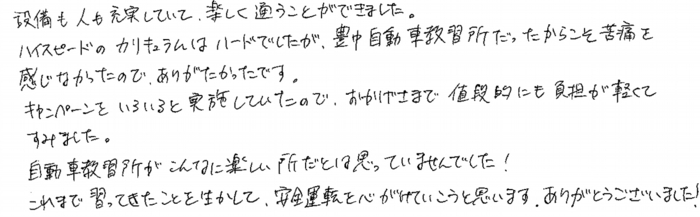 設備も人も充実していて、楽しく通うことができました。
ハイスピードのカリキュラムはハードでしたが、豊中自動車教習所だったからこそ苦痛を
感じなかったので、ありがたかったです。
キャンペーンをいろいろと実施していたので、おかげさまで値段的にも負担が軽くて
すみました。
自動車教習所がこんなに楽しい所だとは思っていませんでした！
これまで習ってきたことを生かして、安全運転を心がけていこうと思います。ありがとうございました！